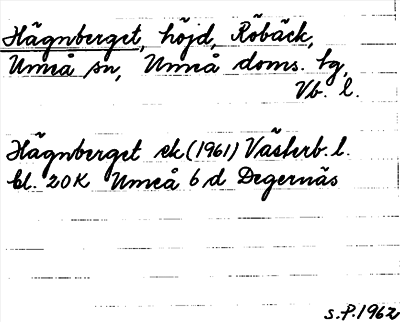 Hägnberget, höjd, Röbäck,
Umeå sn, Umeå doms. tg,
Vb. l.
Hägnberget ek (1961) Västerb. l.
bl. 20K Umeå 6 d Degernäs
S.P. 1962